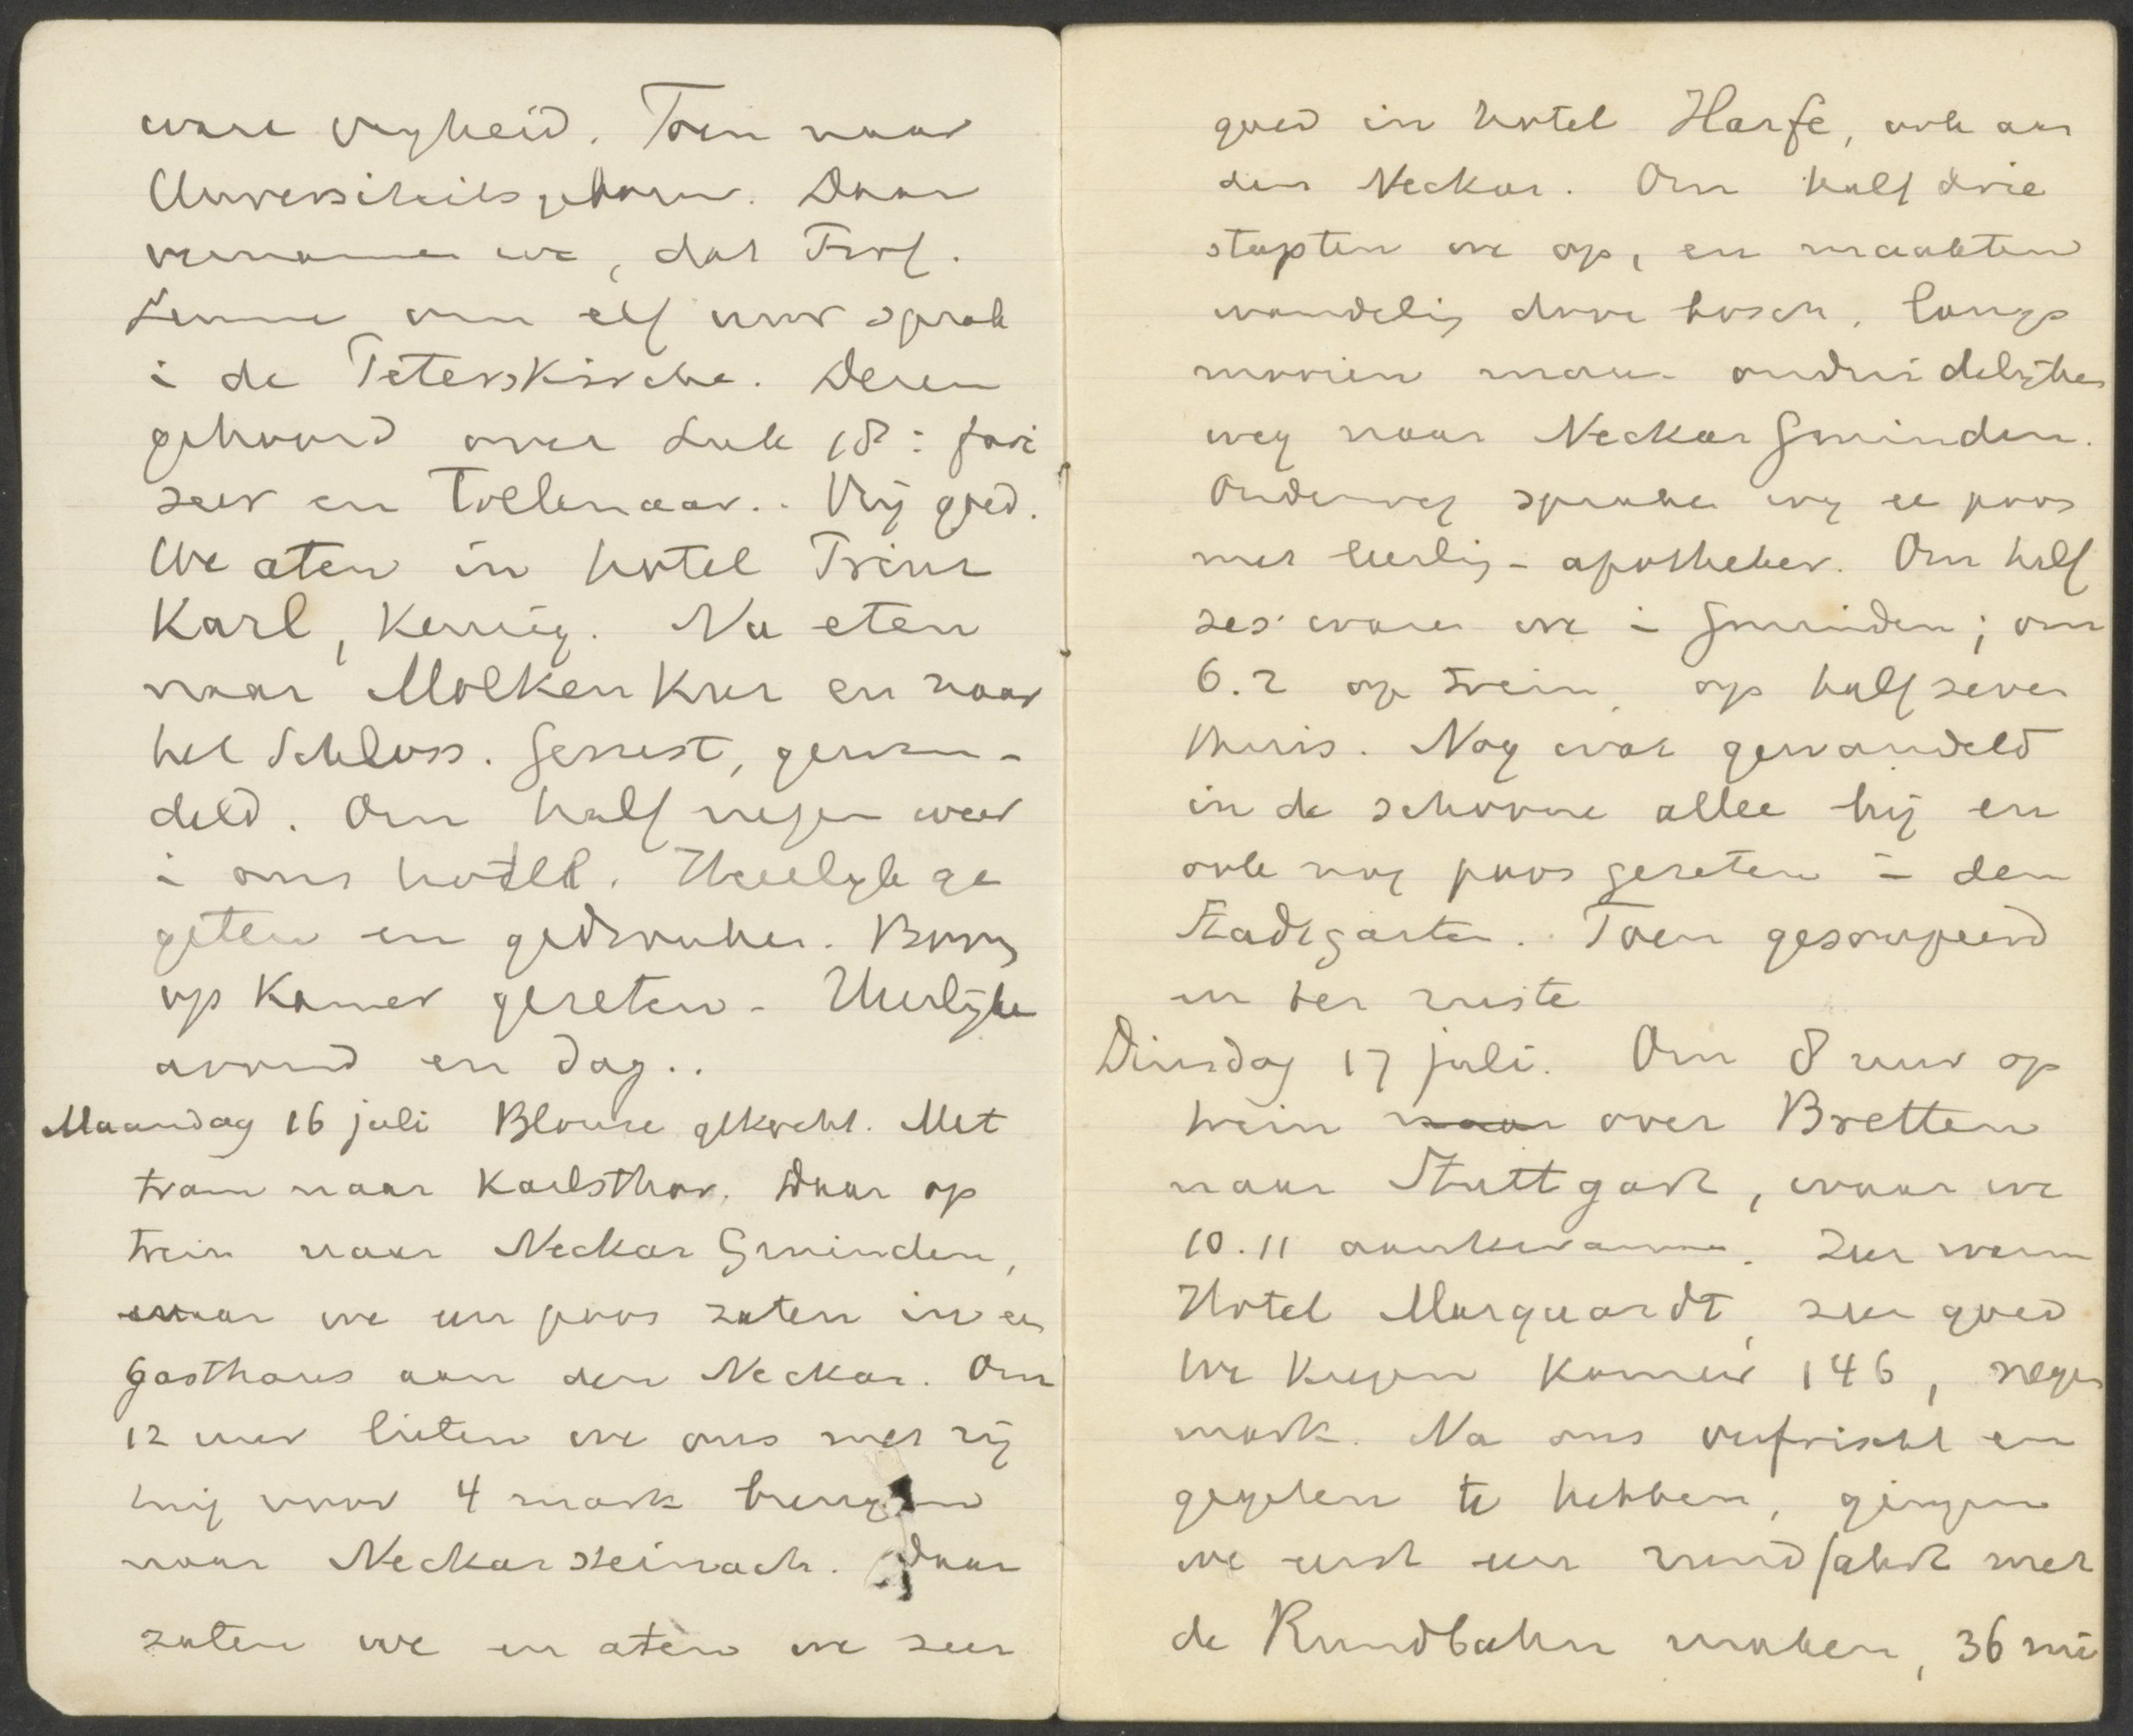 ware vryheid. Toen naar
Universiteitsgebouw. Daar
vernamen we, dat Prof.
Lemme om elf uur sprak
i de Peterskirche. Dezen
gehoord over Luk 18: fari
zeer en tollenaar.. Vrij goed.
We aten in hotel Prinz
Karl, Kennig. Na eten
naar Molkenkur en naar
het Schloss. Gerust, gewan-
deld. Om half negen weer
i ons hotel. Heerlyk ge
geten en gedronken.
op Kamer gezeten. Heerlyke
avond en dag..
Maandag 16 juli Blouse gekocht. Met
tram naar Karlsthor. Daar op
trein naar Neckar Gminden,
waar we een poos zaten in een
Gasthaus aan den Neckar. Om
12 uur lieten we ons met rij
tuig voor 4 mark brengen
naar Neckarsteinach. Daar
zaten we en aten we zeer
goed in hotel Harfe, ook aan
den Neckar. Om half drie
stapten we op, en maakten
wandelig door bosch, langs
mooien maar onduidelijken
weg naar Neckar Gminden.
Onderweg spraken wy ee poos
met leerlig-apotheker. Om half
zes waren we i Gminden; om
6.2 op trein, op half zeven
thuis. Nog wat gewandeld
in de schoone allee hij en
ook nog poos gezeten i den
Stadtgarten. Toen gesoupeerd
en ter ruste
Dinsdag 17 juli. Om 8 uur op
trein naar over Bretten
naar Stuttgart, waar we
10.11 aankwamen. Zeer warm
Hotel Marquardt, zeer goed
We kregen kamer 146, negen
mark. Na ons verfrischt en
gegeten te hebben, gingen
we eerst een rundfahrt met
de Rundbahn maken, 36 mi